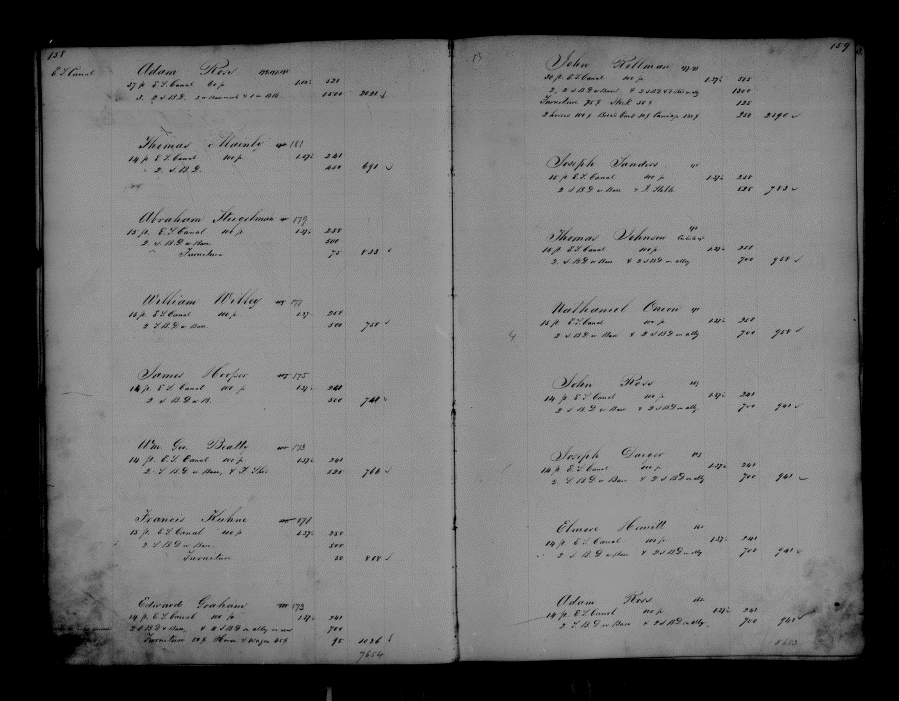 158
E S Canal
Adam Ross
37 ft E S Canal 60 p 520
3. 2 S B D. 1500 2021
Thomas 181
14 ft E S Canal 100 p 1.27½ 241
2 S B D. 450 691
Abraham Stigelman 179
15 ft. E S Canal 100 p 1.27½ 258
2 S B D w Base 500
Furniture 75 833
William Willig 177
15 ft E S Canal 100 p 1.27 258
2 S B D w Base 500 758
James Hooper 175
14 ft E S Canal 100 p 1.27½ 241
2 S B D w B. 500 741
Wm. Geo. Beatty 173
14 ft. E S Canal 100 p 1.27½ 241
2 S B D w Base, & F. 525 766
Francis Kuhne 171
15 ft. E S Canal 100 p 1.27½ 258
2 S B D w Base. 500
Furniture 50 808
Edward Graham 173
14 ft. E S Canal 100 p 1.27½ 241
2 S B D w Base, & 2 S B D w ally 700
Furniture 50 $ Horse & Wagon 45 $ 95 1036
7654
159
13
John Rollman
30 ft. E S Canal 100 p 1.27½ 515
2. 2 S B D w Base & 2 S B D 1300
Furniture 75 $ Stock 50 $ 125
2 horses 100 $ Cart 30 $ 120 $ 250 2190
Joseph Sanders
15 ft. E S Canal 100 p 1.27½ 258
2 S B D w Base & F. Stable 525 783
Thomas Johnson
15 ft. E S Canal 100 p 1.27½ 258
2. S B D w Base & 2 S B D w ally 700 958
Nathaniel Onion
15 ft. E S Canal 100 p 1.27½ 258
2 S B D w Base & 2 S B D w ally 700 958
John Ross
14 ft. E S Canal 100 p 1.27½ 241
2 S B D w Base & 2 S B D w ally 700 941
Joseph
14 ft. E S Canal 100 p 1.27½ 241
2 S B D w Base & 2 S B D w ally 700 941
Elmore Hewitt
14 ft. E S Canal 100 p 1.27½ 241
2 S B D w Base & 2 S B D w ally 700 941
Adam Ross
14 ft. E S Canal 100 p 1.27½ 241
2 S B D w Base & 2 S B D w ally. 700 941
8653